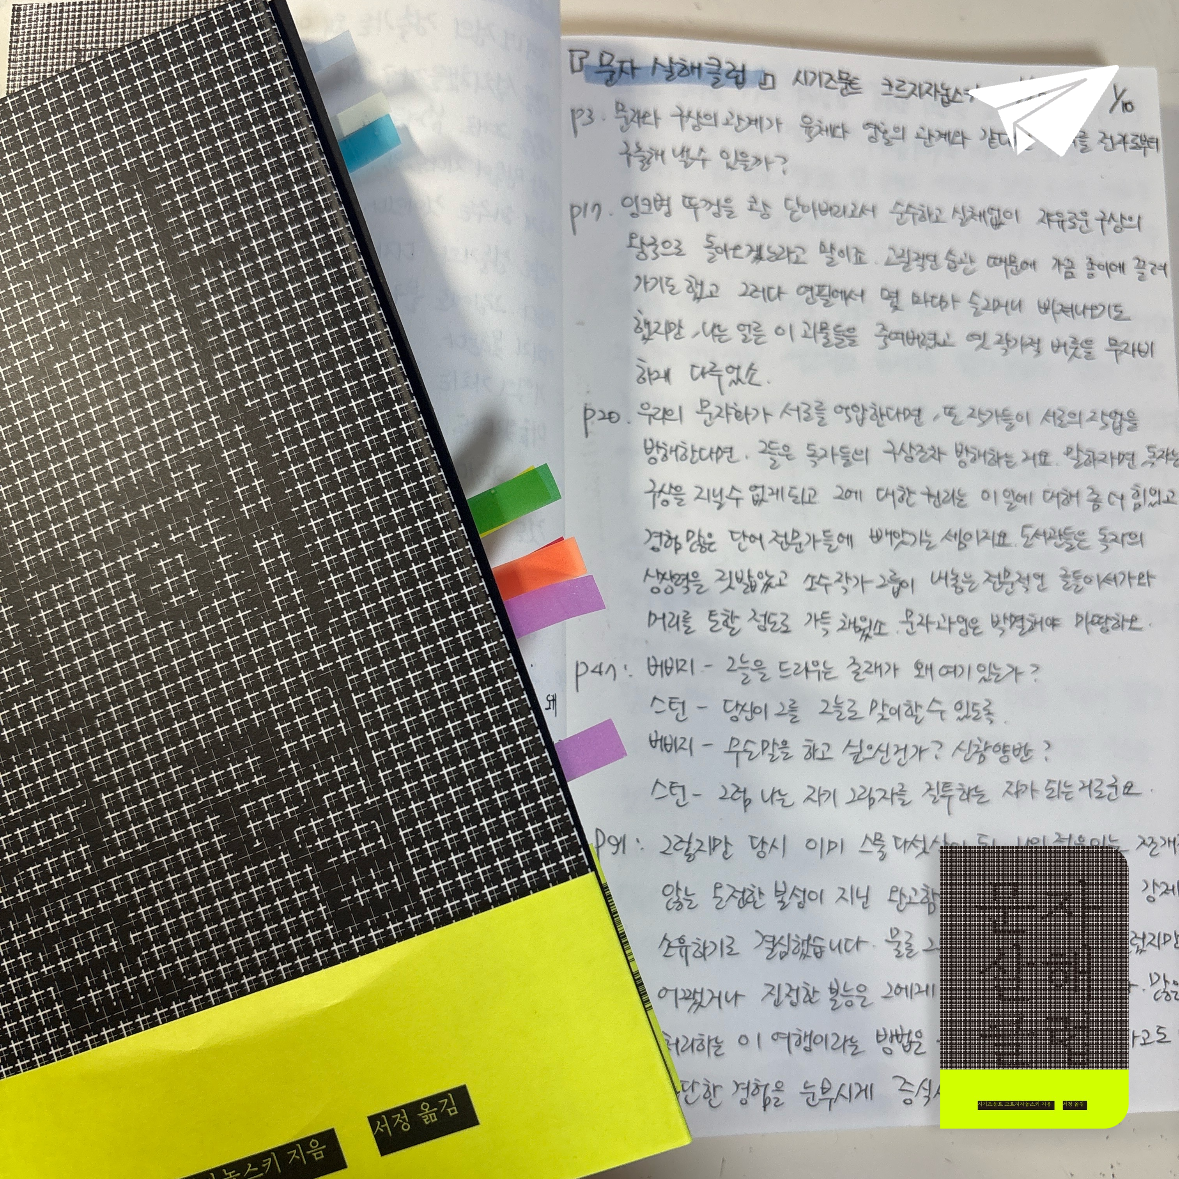 『문자 살해클럽』 시기즈문트 크르지자놉스키 1/10
p3. 문자와 구상의 관계가 육체와 영혼의 관계와 같다 를 전자로부터
구출해 낼 수 있을까?
p17. 잉크병 뚜껑을 쾅 닫아버리고서 순수하고 실체없이 자유로운 구상의
왕국으로 돌아오겠노라고 말이죠. 고질적인 습관 때문에 가끔 종이에 끌려
가기도 했고 그러다 연필에서 몇 마디가 슬며시 빠져나가기도
했지만, 나는 얼른 이 괴물들을 죽여버렸고 옛 작가적 버릇을 무자비
하게 다루었소.
p20. 우리의 문자하가 서로를 억압한다면, 또 작가들이 서로의 작업을
방해한다면, 그들은 독자들의 구상조차 방해하는 거요. 말하자면 독자는
구상을 지닐 수 없게 되고 그에 대한 권리는 이 일에 대해 좀 더 힘있고
경험 많은 단어 전문가들에 빼앗기는 셈이지요. 도서관들은 독자의
상상력을 짓밟았고 소수 작가 그룹이 내놓은 전문적인 글들이 서가와
머리를 토할 정도로 가득 채웠소. 문자 과잉은 박멸해야 마땅하오.
p47: 버비지 - 그늘을 드리우는 존재가 왜 여기 있는가?
스턴 - 당신이 그를 그늘로 맞이할 수 있도록.
버비지 - 무슨 말을 하고 싶으신건가? 신참양반?
스턴 - 그럼 나는 자기 그림자를 질투하는 자가 되는 거로군요.
p91: 그렇지만 당시 이미 스물 다섯살이
않는 온전한 불성이 지닌 완고함 강제
소유하기로 결심했습니다. 물론 그 렇지만
어쨌거나 진정한 불능은 그에게 많은
처리하는 이 여행이라는 방법은 하고도
단한 경험을 눈부시게 증식
왜
놉스키 지음 서정 옮김
문자
살해
클럽
시기즈문트 크르지자놉스키 지음 서정 옮김